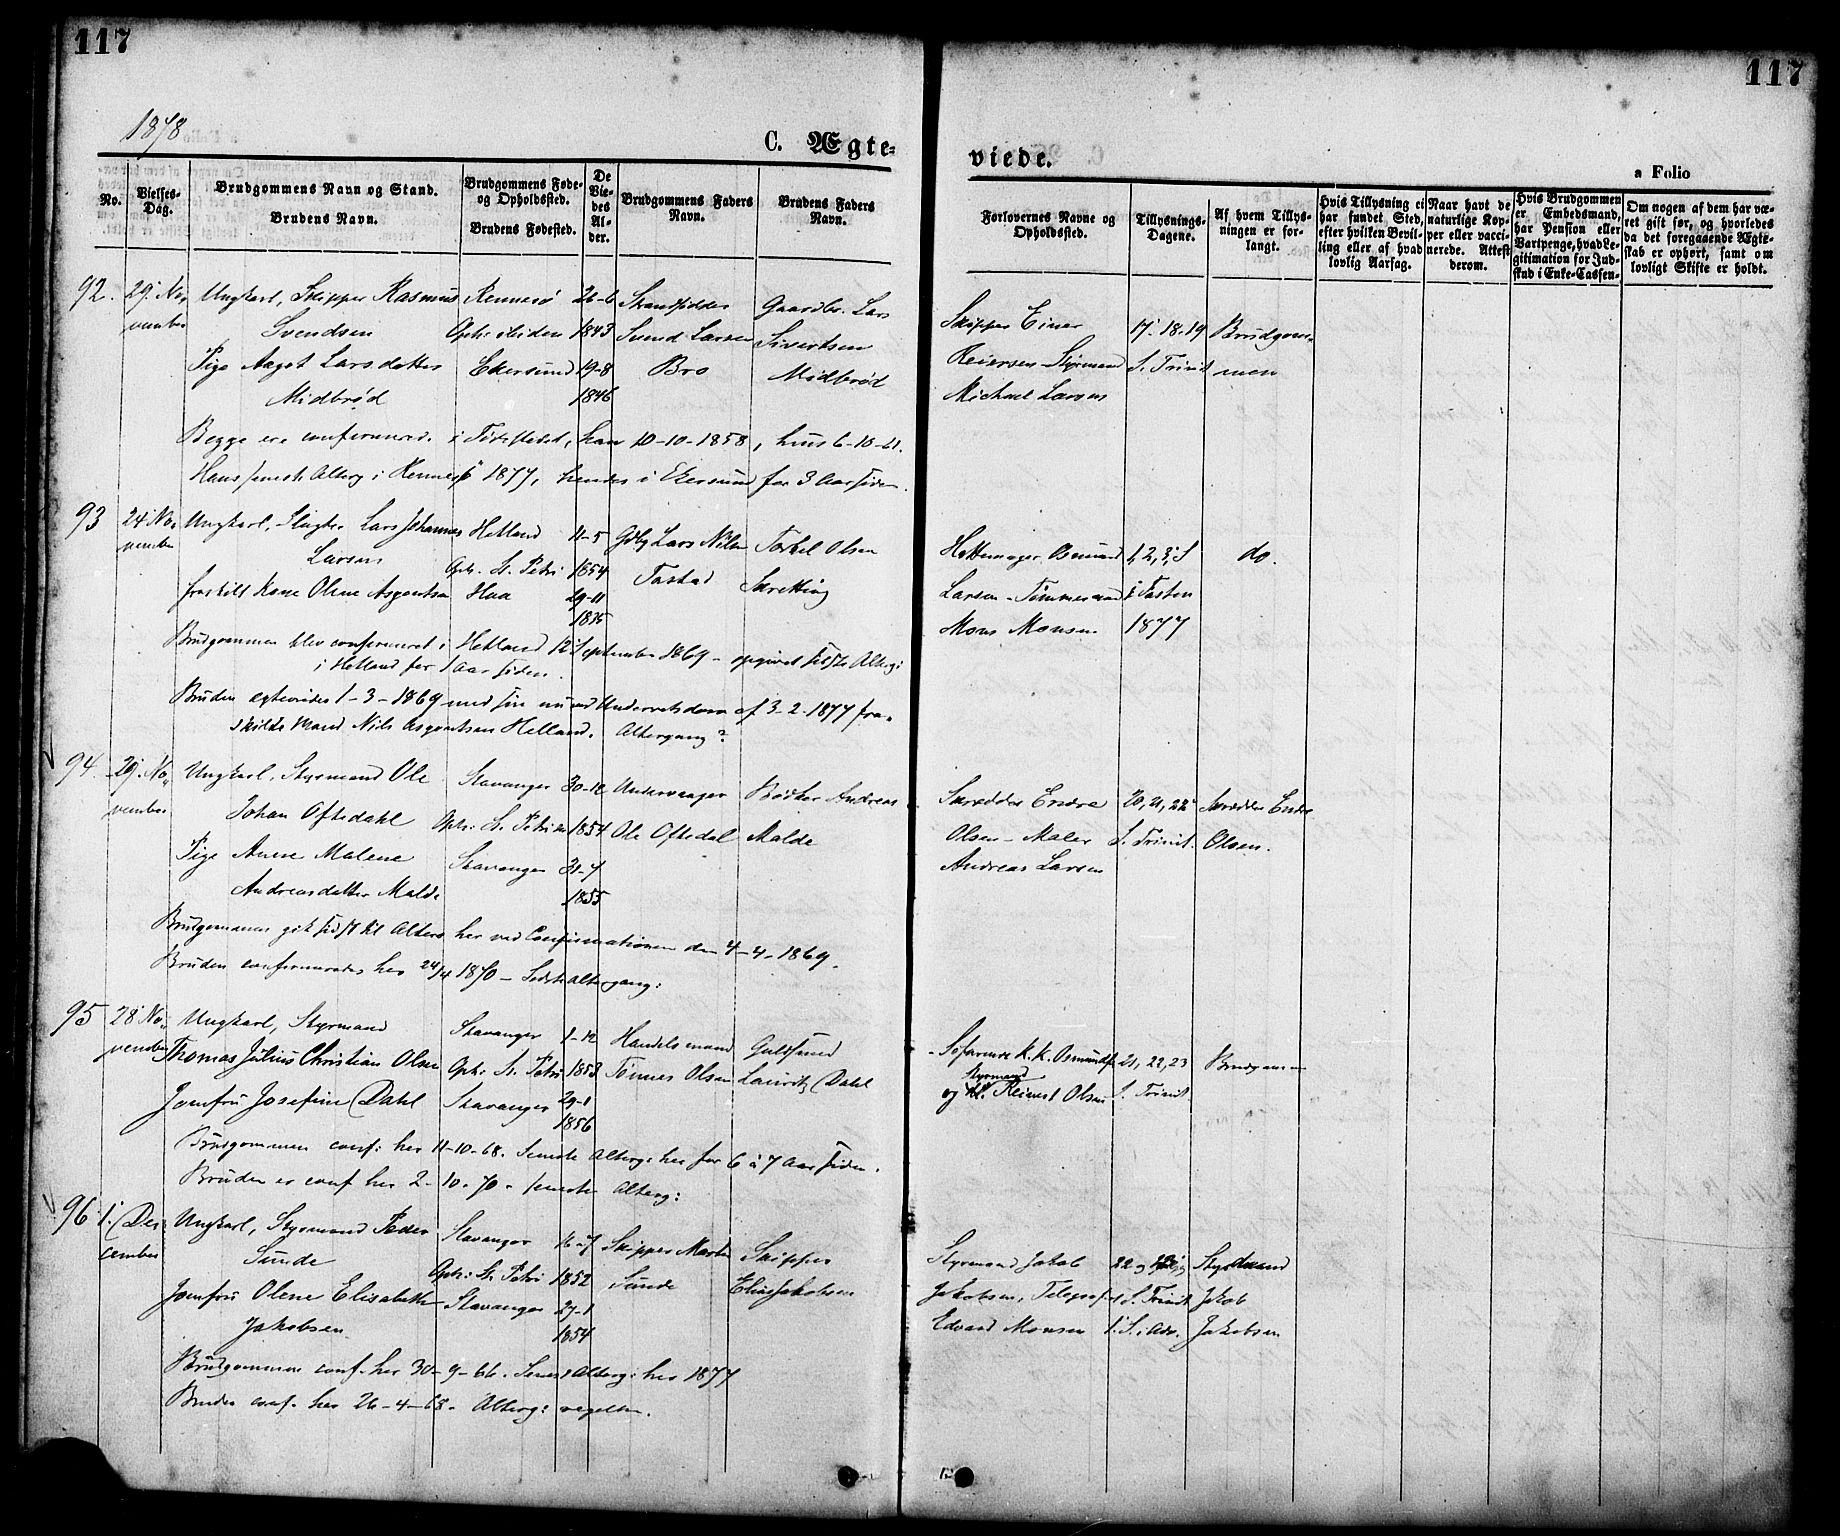 117
117
1878
C. Ægte-
viede.
a Folio
No.
Vielses-
Dag.
Brudgommens Navn og Stand.
Brudens Navn.
Brudgommens Føde-
og Opholdssted.
Brudens Fødested.
De
Vie-
des
Al-
der.
Brudgommens Faders
Navn.
Brudens Faders
Navn.
Forlovernes Navne og
Opholdssted.
Tillysnings-
Dagene.
Af hvem Tillys-
ningen er for-
langt.
Hvis Tillysning ei
har fundet Sted,
efter hvilken Bevil-
ling eller af hvad
lovlig Aarsag.
Naar havt de
naturlige Kop-
per eller vacci-
nerede. Attest
derom.
Hvis Brudgommen
er Embedsmand,
har Pension eller
Vartpenge, hvad Le-
gitimation for Ind-
skud i Enke-Cassen-
Om nogen af dem har væ-
ret gift før, og hvorledes
da det foregaaende Ægte-
skab er ophørt, samt om
lovligt Skifte er holdt.
92. 29. No- Ungkarl, Skipper Rasmus Rennesø 26-6 Strandsidder Gaardbr. Lars
vember Svendsen Oph: 1843 Svend Larsen Sivertsen
Pige Aaget Larsdatter Ekersund 19-8 Bro Midbrød
Midbrød 1846
Skipper Einer 17. 18. 19 Brudgom-
Reiersen Styrmand S. Trinit men
Michael Larsen
Begge ere confirmered i Fødestedet, han 10-10-1858, hun 6-10-61.
Hans seneste Alterg i Rennesø 1877, hendes i Ekersund for 3 Aar siden.
93 24 No- Ungkarl, Slagter Lars Johannes Hetland 11-5 Gdbg Lars Nilsen Torkel Olsen
vember Larsen Oph. St. Petri 1854 Tastad Skretting
fraskilt Kone Olene Asgautsen Haa 29-11
1835
Hattemager Osmund 1, 2, 3, S do.
Larsen - Tømmermand i Fasten
Mons Monsen 1877
Brudgommen blev confirmeret i Hetland 12 September 1869 - opgivet sidste Alterg:
i Hetland for 1 Aar siden.
Bruden egteviedes 1-3-1869 med sin nu ved Underretsdom af 3-2-1877 fra-
skilte Mand Nils Asgautsen Helland. Altergang?
94. 29. No- Ungkarl, Styrmand Ole Stavanger 30-12 Bødker Andreas
vember Johan Oftedahl Oph: St. Petri 1854 Ole Oftedal Malde
Pige Anne Malene Stavanger 31-7
Andreasdatter Malde 1855
Skrædder Endre 20, 21, 22 Skrædder Endre
Olsen - Maler S. Trinit. Olsen.
Andreas Larsen
Brudgommen gik sidst til Alters her ved Confirmationen den 4-4-1869.
Bruden confirmeredes her 24/4 1870 - Sidste altergang:
95 28 No- Ungkarl, Styrmand Stavanger 1-12 Handelsmand Guldsmed
vember Thomas Julius Christian Olsen Oph: St. Petri 1853 Tønnes Olsen Lauritz Dahl
Jomfru Josefine Dahl Stavanger 29-1
1856
Søfarende K. K. Osmunds. 21, 22, 23 Brudgommen
Styrmand
og Reinert Olsen S. Trinit
Brudgommen conf: her 11-10-68. Seneste Alterg: her for 6 à 7 Aar siden.
Bruden er conf her 2-10-70. seneste Alterg:
96 1. De- Ungkarl, Styrmand Peder Stavanger 16-7 Skipper Martin Skipper
cember Sunde Oph: St. Petri 1852 Sunde Elias Jakobsen
Jomfru Olene Elisabeth Stavanger 27-1
Jakobsen 1854
Styrmand Jakob 22 Styrmand
Jakobsen, Telegraf S. Trinit Jakob
Edvard Monsen 1. S. i Adv. Jakobsen
Brudgommen conf. her 30-9-66. Senest Alterg: her 1877
Bruden conf. her 26-4-68. Alterg: